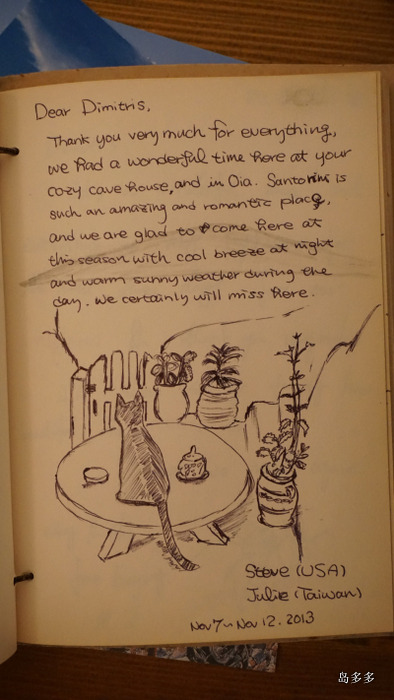 Dear Dimitris,
Thank you very much for everything,
we had a wonderful time here at your
cozy cave house, and in Oia. Santorini is
such an amazing and romantic place,
and we are glad to come here at
this season with cool breeze at night
and warm sunny weather during the
day. We certainly will miss here.
Steve (USA)
Julie (Taiwan)
Nov 7 ~ Nov 12. 2013
岛多多